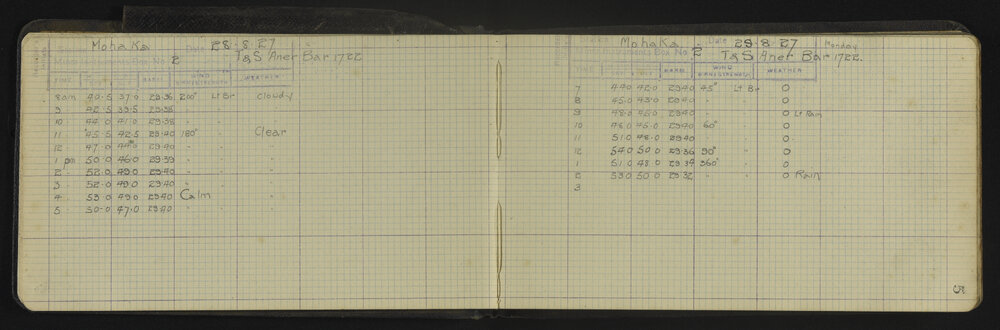 Mohaka Date 28·8·27
Instruments Box No 2 T&S Aner Bar 1722
TIME BAR. WIND DIR & STRENGTH WEATHER
8am 40·5 37·0 29·36 200° Lt Br Cloudy
9 42·5 39·5 29·38 " " "
10 44·0 41·0 29·38 " " "
11 45·5 42·5 29·40 180° " Clear
12 47·0 44·0 29·40 " " "
1 pm 50·0 46·0 29·39 " " "
2 52·0 49·0 29·40 " " "
3 52·0 49·0 29·40 " " "
4 53·0 49·0 29·40 Calm "
5 50·0 47·0 29·40 " " "
Mohaka Date 29·8·27 Monday
Instruments Box No 2 T&S Aner Bar 1722
TIME BAR. WIND DIR & STRENGTH WEATHER
7 44·0 42·0 29·40 45° Lt Br O
8 45·0 43·0 29·40 " " O
9 48·0 45·0 29·40 " " O Lt Rain
10 48·0 45·0 29·40 60° " O
11 51·0 48·0 29·40 " " O
12 54·0 50·0 29·36 90° " O
1 51·0 48·0 29·34 360° " O
2 53·0 50·0 29·32 " " O Rain
3
5